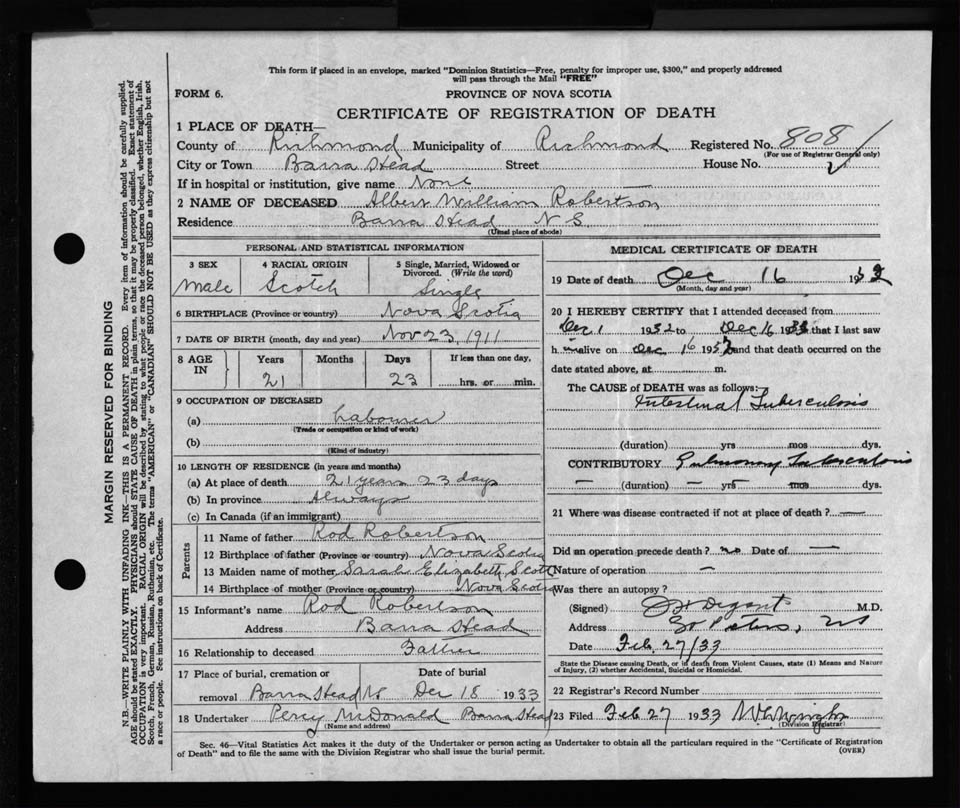 This form if placed in an envelope, marked "Dominion Statistics—Free, penalty for improper use, $300," and properly addressed
will pass through the Mail "FREE"
FORM 6.
PROVINCE OF NOVA SCOTIA
CERTIFICATE OF REGISTRATION OF DEATH
1 PLACE OF DEATH—
County of Richmond Municipality of Richmond Registered No. 808
(For use of Registrar General only)
City or Town Barra Head Street House No.
If in hospital or institution, give name None
2 NAME OF DECEASED Albert William Robertson
Residence Barra Head N S.
(Usual place of abode)
PERSONAL AND STATISTICAL INFORMATION
3 SEX
Male
4 RACIAL ORIGIN
Scotch
5 Single, Married, Widowed or
Divorced. (Write the word)
Single
6 BIRTHPLACE (Province or country) Nova Scotia
7 DATE OF BIRTH (month, day and year) Nov 23, 1911
8 AGE IN
Years Months Days If less than one day,
21 23 hrs. or min.
9 OCCUPATION OF DECEASED
(a) Labourer
(Trade or occupation or kind of work)
(b)
(Kind of industry)
10 LENGTH OF RESIDENCE (in years and months)
(a) At place of death 21 years 23 days
(b) In province Always
(c) In Canada (if an immigrant)
Parents
11 Name of father Rod Robertson
12 Birthplace of father (Province or country) Nova Scotia
13 Maiden name of mother Sarah Elizabeth Scott
14 Birthplace of mother (Province or country) Nova Scotia
15 Informant's name Rod Robertson
Address Barra Head
16 Relationship to deceased Father
17 Place of burial, cremation or Date of burial
removal Barra Head NS Dec 18 1933
18 Undertaker Percy McDonald Barra Head
(Name and address)
MEDICAL CERTIFICATE OF DEATH
19 Date of death Dec 16 1932
(Month, day and year)
20 I HEREBY CERTIFY that I attended deceased from
Dec 1 1932 to Dec 16 1932 that I last saw
h im alive on Dec 16 1932 and that death occurred on the
date stated above, at m.
The CAUSE of DEATH was as follows:
Intestinal Tuberculosis
(duration) yrs mos dys.
CONTRIBUTORY Pulmonary Tuberculosis
— (duration) — yrs — mos dys.
21 Where was disease contracted if not at place of death? —
Did an operation precede death? no Date of —
Nature of operation —
Was there an autopsy?
(Signed) M.D.
Address St Peters, NS
Date Feb. 27/33
State the Disease causing Death, or in death from Violent Causes, state (1) Means and Nature
of Injury, (2) whether Accidental, Suicidal or Homicidal.
22 Registrar's Record Number
23 Filed Feb 27 1933
(Division Registrar)
Sec. 46—Vital Statistics Act makes it the duty of the Undertaker or person acting as Undertaker to obtain all the particulars required in the "Certificate of Registration
of Death" and to file the same with the Division Registrar who shall issue the burial permit.
(OVER)
MARGIN RESERVED FOR BINDING
N.B.—WRITE PLAINLY WITH UNFADING INK—THIS IS A PERMANENT RECORD. Every item of information should be carefully supplied.
AGE should be stated EXACTLY. PHYSICIANS should STATE CAUSE OF DEATH in plain terms, so that it may be properly classified. Exact statement of
OCCUPATION is very important. RACIAL ORIGIN will be described by stating to what people or race the deceased person belonged, whether English, Irish,
Scotch, French, German, Russian, Ruthenian, etc. The terms "AMERICAN" or "CANADIAN" SHOULD NOT BE USED as they express citizenship but not
a race or people. See instructions on back of Certificate.